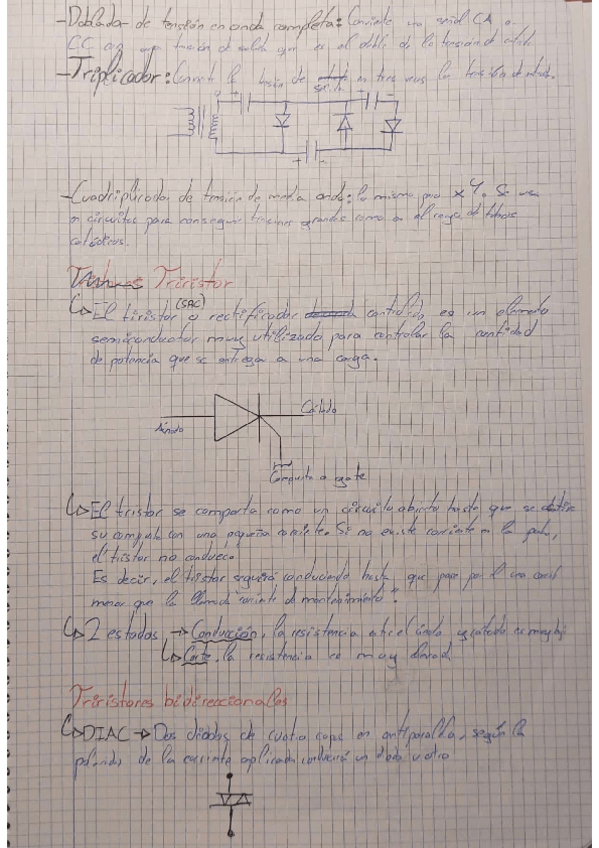 -Doblador de tensión en onda completa: Convierte una señal CA a
CC con una tensión de salida que es al doble de la tensión de entrada
-Triplicador: Convierte la tensión de salida en tres veces la tensión de entrada.
-Cuadriplicador de tensión de media onda: lo mismo pero x4. Se usa
en circuitos para conseguir tensiones grandes como en el rayo de tubos
catódicos.
Triristor
El tiristor (SRC) o rectificador controlado es un elemento
semiconductor muy utilizado para controlar la cantidad
de potencia que se entrega a una carga.
Ánodo
Cátodo
Compuerta o gate
El tristor se comporta como un circuito abierto hasta que se active
su compuerta con una pequeña corriente. Si no existe corriente en la puerta,
el tristor no conduce.
Es decir, el tristor seguirá conduciendo hasta que pase por él una corriente
menor que la llamada "corriente de mantenimiento".
2 estados, → Conducción, la resistencia entre el ánodo y cátodo es muy baja
Corte, la resistencia es muy elevada
Triristores bidireccionales
DIAC → Dos diodos de cuatro capas en antiparalelo, según la
polaridad de la corriente aplicada conducirá un diodo u otro